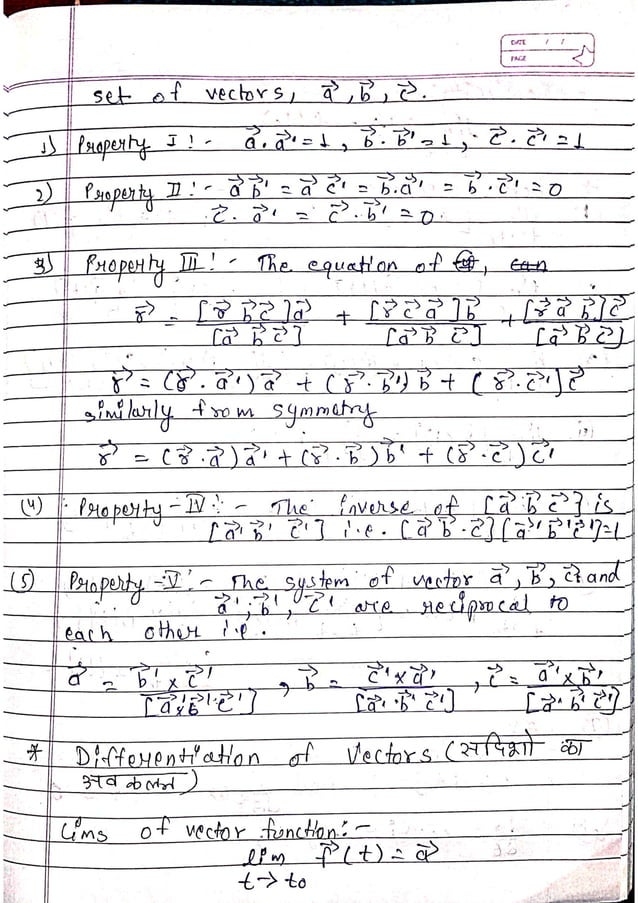 DATE / /
PAGE
set of vectors, a⃗, b⃗, c⃗.
1) Property I :- a⃗. a⃗' = 1, b⃗. b⃗' = 1, c⃗. c⃗' = 1
2) Property II :- a⃗ b⃗' = a⃗ c⃗' = b⃗. a⃗' = b⃗. c⃗' = 0
c⃗. a⃗' = c⃗. b⃗' = 0
3) Property III :- The equation of
r⃗ = [r⃗ b⃗ c⃗]a⃗ / [a⃗ b⃗ c⃗] + [r⃗ c⃗ a⃗]b⃗ / [a⃗ b⃗ c⃗] + [r⃗ a⃗ b⃗]c⃗ / [a⃗ b⃗ c⃗]
r⃗ = (r⃗. a⃗')a⃗ + (r⃗. b⃗')b⃗ + (r⃗. c⃗']c⃗
similarly from symmetry
r⃗ = (r⃗. a⃗)a⃗' + (r⃗. b⃗)b⃗' + (r⃗. c⃗)c⃗'
(4) Property-IV :- The inverse of [a⃗ b⃗ c⃗] is
[a⃗' b⃗' c⃗'] i.e. [a⃗ b⃗. c⃗][a⃗' b⃗' c⃗']=1
(5) Property-V :- The system of vector a⃗, b⃗, c⃗ and
a⃗', b⃗', c⃗' are reciprocal to
each other i.e.
a⃗ = b⃗' × c⃗' / [a⃗' × b⃗' c⃗'] , b⃗ = c⃗' × a⃗' / [a⃗' b⃗' c⃗'] , c⃗ = a⃗' × b⃗' / [a⃗' b⃗' c⃗']
* Differentiation of Vectors (सदिशो का
अवकलन)
Lims of vector function:-
lim f⃗(t) = a⃗
t→to